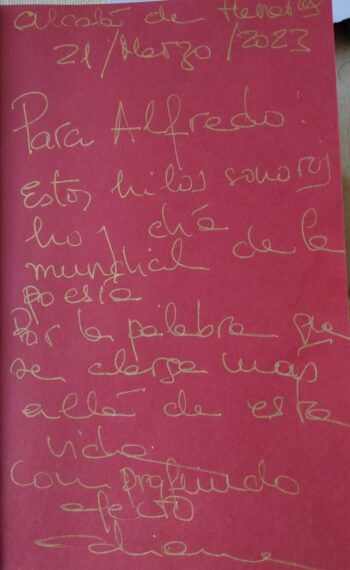 Alcalá de Henares
21/Marzo/2023
Para Alfredo:
Estos hilos sonoros
hoy día
mundial de la
poesía
Por la palabra que
se alarga más
allá de esta
vida.
Con profundo
afecto